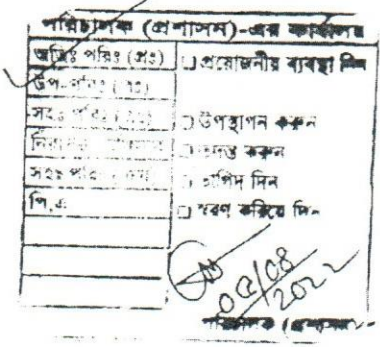 পরিচালক (প্রশাসন)-এর কার্যালয়
অতিঃ পরিঃ (প্রঃ) □ প্রয়োজনীয় ব্যবস্থা নিন
উপ-পরিঃ (প্রঃ)
সহঃ পরিঃ □ উপস্থাপন করুন
□ তদন্ত করুন
সহঃ পরিঃ □ তাগিদ দিন
পি,এ □ স্মরণ করিয়ে দিন
2022
পরিচালক (প্রশাসন)